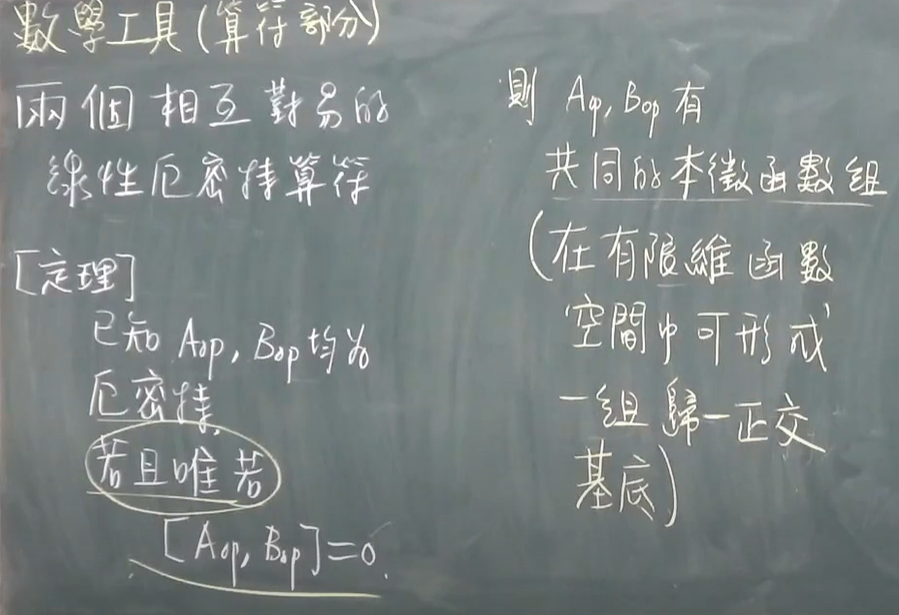 數學工具(算符部分)
兩個相互對易的
線性厄密特算符
[定理]
已知 Aop, Bop均為
厄密特,
若且唯若
[Aop, Bop]=0.
則 Aop, Bop有
共同的本徵函數組
(在有限維函數
空間中可形成
一組歸一正交
基底)